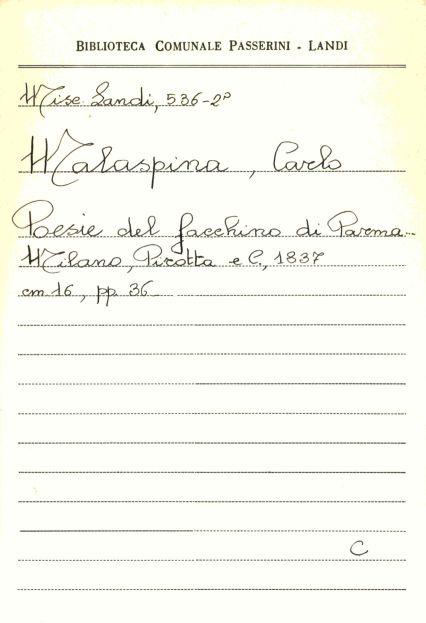 BIBLIOTECA COMUNALE PASSERINI - LANDI
Misc. Landi, 536-2º
Malaspina, Carlo
Poesie del facchino di Parma..
Milano, Pirotta e C., 1837
cm 16, pp. 36
C